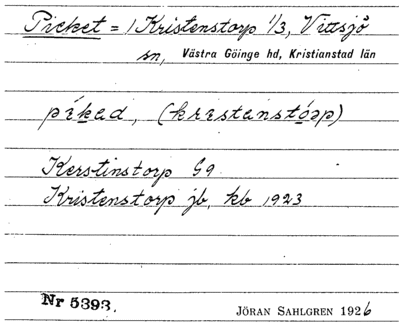 Picket = 1 Kristenstorp 1/3, Vittsjö
sn, Västra Göinge hd, Kristianstad län
píkad, (kristanstórp)
Kerstinstorp G9
Kristenstorp jb, kb 1923
Nr 5393. JÖRAN SAHLGREN 1926